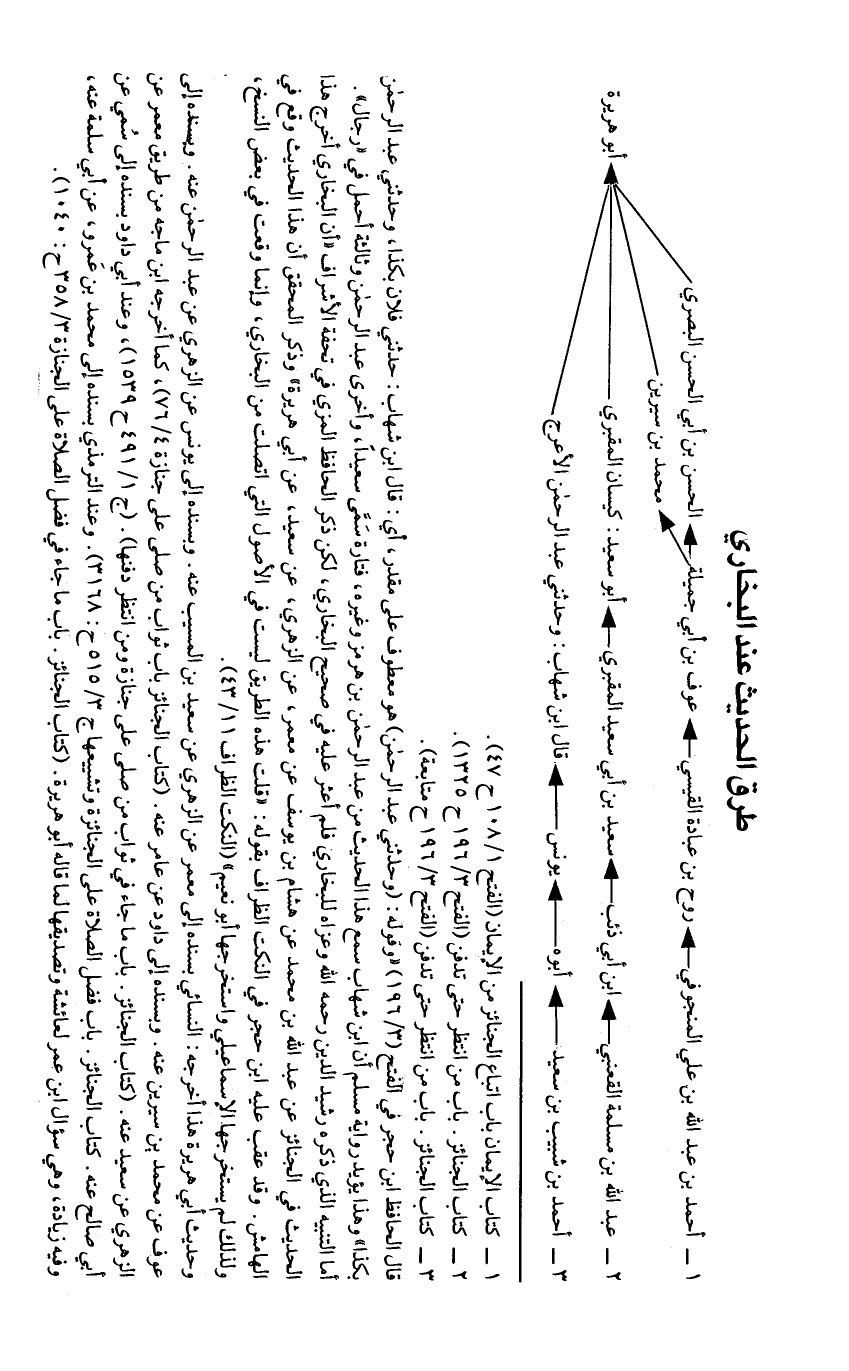 طرق الحديث عند البخاري
١ ــ أحمد بن عبد الله بن علي المنجوفي ← روح بن عبادة القيسي ← عوف بن أبي جميلة ← الحسن بن أبي الحسن البصري
محمد بن سيرين
أبو هريرة
٢ ــ عبد الله بن مسلمة القعنبي ← ابن أبي ذئب ← سعيد بن أبي سعيد المقبري ← أبو سعيد: كيسان المقبري
٣ ــ أحمد بن شبيب بن سعيد ← أبوه ← يونس ← قال ابن شهاب: وحدثني عبد الرحمٰن الأعرج
١ ــ كتاب الإيمان باب اتباع الجنائز من الإيمان (الفتح ١٠٨/١ ح ٤٧).
٢ ــ كتاب الجنائز. باب من انتظر حتى تدفن (الفتح ١٩٦/٣ ح ١٣٢٥).
٣ ــ كتاب الجنائز. باب من انتظر حتى تدفن (الفتح ١٩٦/٣ ح متابعة).
قال الحافظ ابن حجر في الفتح (١٩٦/٣) «وقوله: (وحدثني عبد الرحمٰن) هو معطوف على مقدر، أي: قال ابن شهاب: حدثني فلان بكذا، وحدثني عبد الرحمٰن
بكذا» وهذا يؤيد رواية مسلم أن ابن شهاب سمع هذا الحديث من عبد الرحمٰن بن هرمز وغيره، فتارة سَمَّى سعيداً، وأخرى عبد الرحمٰن وثالثة أحمل في «رجال».
أما التنبيه الذي ذكره رشيد الدين رحمه الله وعزاه للبخاري فلم أعثر عليه في صحيح البخاري، لكن ذكر الحافظ المزي في تحفة الأشراف «أن البخاري أخرج هذا
الحديث في الجنائز عن عبد الله بن محمد عن هشام بن يوسف عن معمر، عن الزهري، عن سعيد، عن أبي هريرة» وذكر المحقق أن هذا الحديث وقع في
الهامش. وقد عقب عليه ابن حجر في النكت الظراف بقوله: «قلت هذه الطريق ليست في الأصول التي اتصلت من البخاري، وإنما وقعت في بعض النسخ،
ولذلك لم يستخرجها الإسماعيلي واستخرجها أبو نعيم» (النكت الظراف ٤٣/١١).
وحديث أبي هريرة هذا أخرجه: النسائي بسنده إلى معمر عن الزهري عن سعيد بن المسيب عنه. وبسنده إلى يونس عن الزهري عن عبد الرحمٰن عنه. وبسنده إلى
عوف عن محمد بن سيرين عنه. وبسنده إلى داود عن عامر عنه. (كتاب الجنائز باب ثواب من صلى على جنازة ٧٦/٤)، كما أخرجه ابن ماجه من طريق معمر عن
الزهري عن سعيد عنه. (كتاب الجنائز. باب ما جاء في ثواب من صلى على جنازة ومن انتظر دفنها). (ج ٤٩١/١ ح ١٥٣٩)، وعند أبي داود بسنده إلى سُمي عن
أبي صالح عنه. كتاب الجنائز. باب فضل الصلاة على الجنائزة وتشييعها ج ٥١٥/٣ ح: ٣١٦٨). وعند الترمذي بسنده إلى محمد بن عَمرو، عن أبي سلمة عنه،
وفيه زيادة، وهي سؤال ابن عمر لعائشة وتصديقها لما قاله أبو هريرة. (كتاب الجنائز. باب ما جاء في فضل الصلاة على الجنازة ٣٥٨/٣ ح: ١٠٤٠).